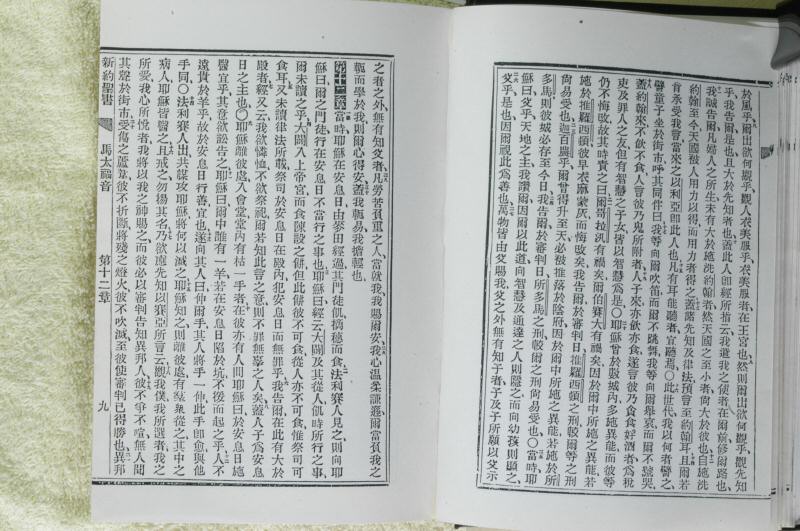 於風乎爾出欲何觀乎觀人衣美服乎衣美服者在王宮也然則爾出欲何觀乎觀先知
乎我告爾是也且大於先知者也蓋此人卽經所指云我遣我之使者在爾前修爾路也
我誠告爾凡婦人之所生未有大於施洗約翰者然天國之至小者尙大於彼也自施洗
約翰至今天國被人用力以得而用力者得之蓋諸先知及律法預言至約翰耳且爾若
肯承受我言當來之以利亞卽此人也凡有耳能聽者宜聽焉○此世代我以何者譬之
譬童子坐於街市呼其同伴曰我等向爾吹笛而爾不跳舞我等向爾舉哀而爾不號哭
蓋約翰來不飲不食人言彼乃鬼所附者人子來亦飲亦食遂言彼乃貪食好酒者爲稅
吏及罪人之友但有智慧之子女皆以智慧爲是○耶穌嘗於數城內多施異能而彼等
仍不悔改故其時責之曰爾哥拉汛有禍矣爾伯賽大有禍矣因於爾中所施之異能若
施於推羅西頓彼早衣麻蒙灰而悔改矣我告爾於審判日推羅西頓之刑較爾等之刑
尙易受也迦百農乎爾曾得升至天必被推落於陰府因於爾中所施之異能若施於所
多馬則彼城必存至今日我告爾於審判日所多馬之刑較爾之刑尙易受也○當時耶
穌曰父乎天地之主我讚爾因爾以此道向智慧及通達之人則隱之而向幼孩則顯之
父乎是也因爾視此爲善也萬物皆由父賜我父之外無有知子者子及子所願以父示
之者之外無有知父者凡勞苦負重之人當就我我賜爾安我心溫柔謙遜爾當負我之
軛而學於我則爾心得安蓋我軛易我擔輕也
第十二章當時耶穌在安息日由麥田經過其門徒飢摘穗而食法利賽人見之則向耶
穌曰爾之門徒行在安息日不當行之事也耶穌曰經云大闢及其從人飢時所行之事
爾未讀之乎大闢入上帝宮而食陳設之餅但此餅彼不可食從人亦不可食惟祭司可
食耳又未讀律法所載祭司於安息日在殿內犯安息日而無罪乎我告爾在此有大於
殿者經又云我欲憐恤不欲祭祀爾若知此言之意則不罪無辜之人矣蓋人子爲安息
日之主也○耶穌離彼處入會堂堂內有枯一手者在彼亦有人問耶穌曰於安息日施
醫宜乎其意欲訟告之耶穌曰爾中誰有一羊若在安息日陷於坑不援而起之乎人不
遠貴於羊乎故於安息日行善宜也遂向其人曰伸爾手其人將手一伸此手卽愈與他
手同○法利賽人出共謀攻耶穌將何以滅之耶穌知之則離彼處有羣衆從之其中之
病人耶穌皆醫之且戒之勿揚其名乃欲應先知以賽亞所言云觀我僕我所選者我之
所愛我心所悅者我將以我之神賜之而彼必以審判告知異邦人彼不爭不喧無人聞
其聲於街市受傷之蘆葦彼不折斷將殘之燈火彼不吹滅至彼使審判已得勝也異邦
新約聖書 馬太福音 第十二章 九